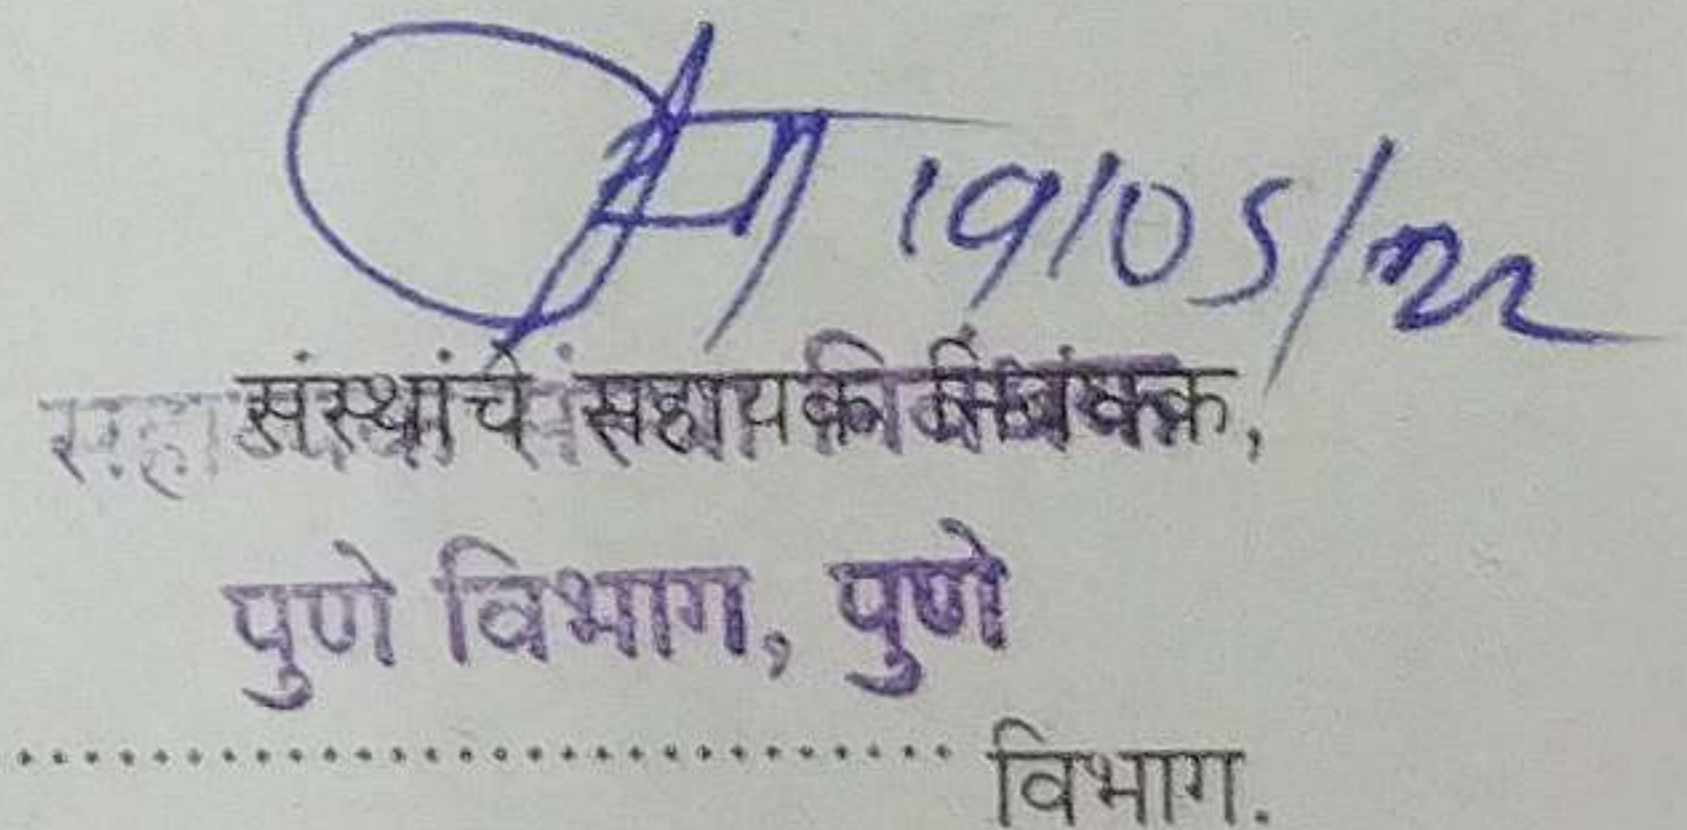 19/05/22
संस्थांचे सहायक निबंधक,
पुणे विभाग, पुणे
.............................. विभाग.